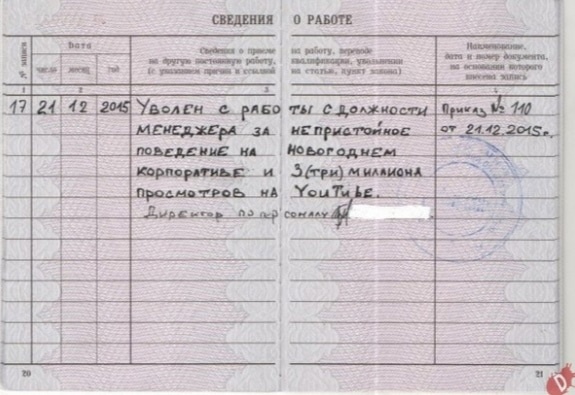 СВЕДЕНИЯ О РАБОТЕ
№ записи
Дата
число месяц год
Сведения о приеме на работу, переводе
на другую постоянную работу, квалификации, увольнении
(с указанием причин и ссылкой на статью, пункт закона)
Наименование,
дата и номер документа,
на основании которого
внесена запись
1 2 3 4
17 21 12 2015 УВОЛЕН С РАБОТЫ С ДОЛЖНОСТИ Приказ № 110
МЕНЕДЖЕРА ЗА НЕПРИСТОЙНОЕ от 21.12.2015г.
ПОВЕДЕНИЕ НА НОВОГОДНЕМ
КОРПОРАТИВЕ И 3(три) МИЛИОНА
ПРОСМОТРОВ НА YOUTUBE.
Директор по персоналу
20 21
D